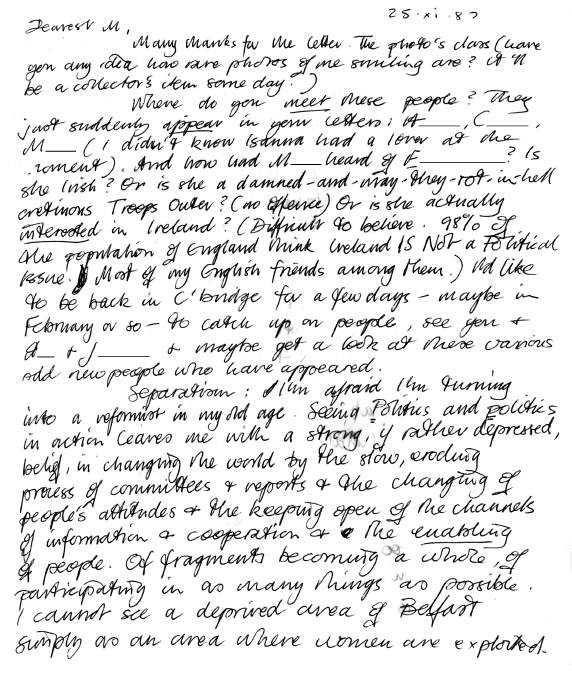 25.xi.87
Dearest M,
Many thanks for the letter. The photo's class (have
you any idea how rare photos of me smiling are? It'll
be a collector's item some day.)
Where do you meet these people? They
just suddenly appear in your letters; A____, C____,
M___ (I didn't know Isanna had a lover at the
moment). And how had M___ heard of F________? Is
she Irish? Or is she a damned-and-may-they-rot-in-hell
cretinous Troops Outer? (no offence) Or is she actually
interested in Ireland? (Difficult to believe. 98% of
the population of England think Ireland IS Not a Political
issue. Most of my English friends among them.) I'd like
to be back in C'bridge for a few days - maybe in
February or so - to catch up on people, see you +
A__ + J_____ + maybe get a look at these various
odd new people who have appeared.
Separation: I'm afraid I'm turning
into a reformist in my old age. Seeing Politics and politics
in action leaves me with a strong, if rather depressed,
belief, in changing the world by the slow, eroding
process of committees + reports + the changing of
people's attitudes + the keeping open of the channels
of information + cooperation + the enabling
of people. Of fragments becoming a whole, of
participating in as many things as possible.
I cannot see a deprived area of Belfast
simply as an area where women are exploited.